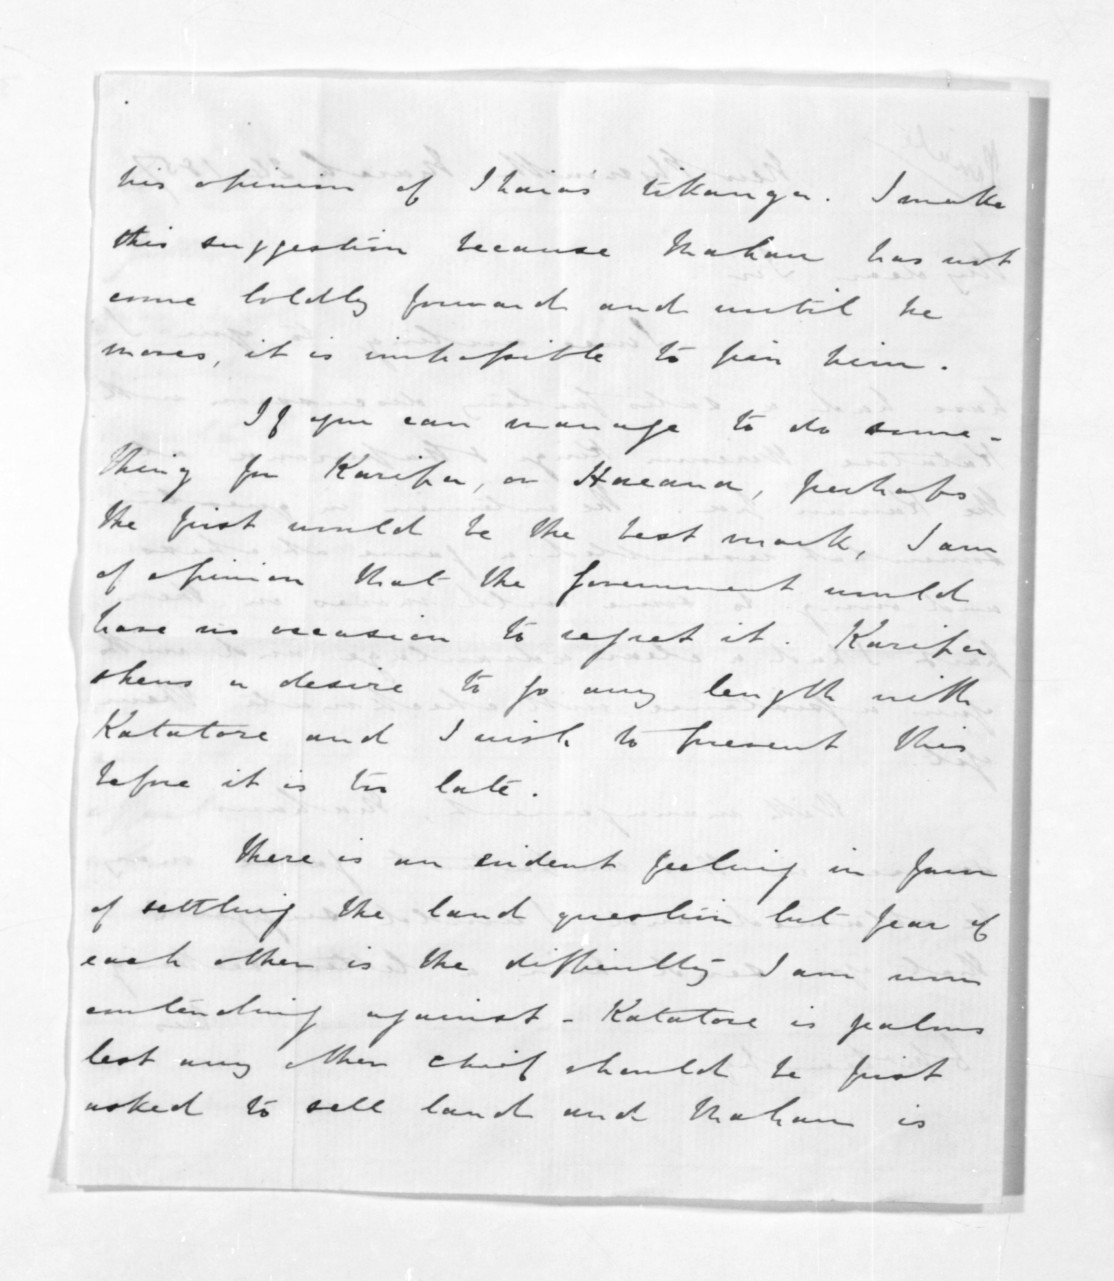 his opinion of Ihaia's tikanga. I make
this suggestion because Mahau has not
come boldly forward and until he
moves, it is impossible to join him.
If you can manage to do some-
thing for Karipa, or Hoeana, perhaps
the first would be the best mark, I am
of opinion that the Government would
have no occasion to regret it. Karipa
shews a desire to go any length with
Katatore and I wish to prevent this
before it is too late.
There is an evident feeling in favor
of settling the land question but fear of
each other is the difficulty I am now
contending against - Katatore is jealous
lest any other chief should be first
asked to sell land and Mahau is